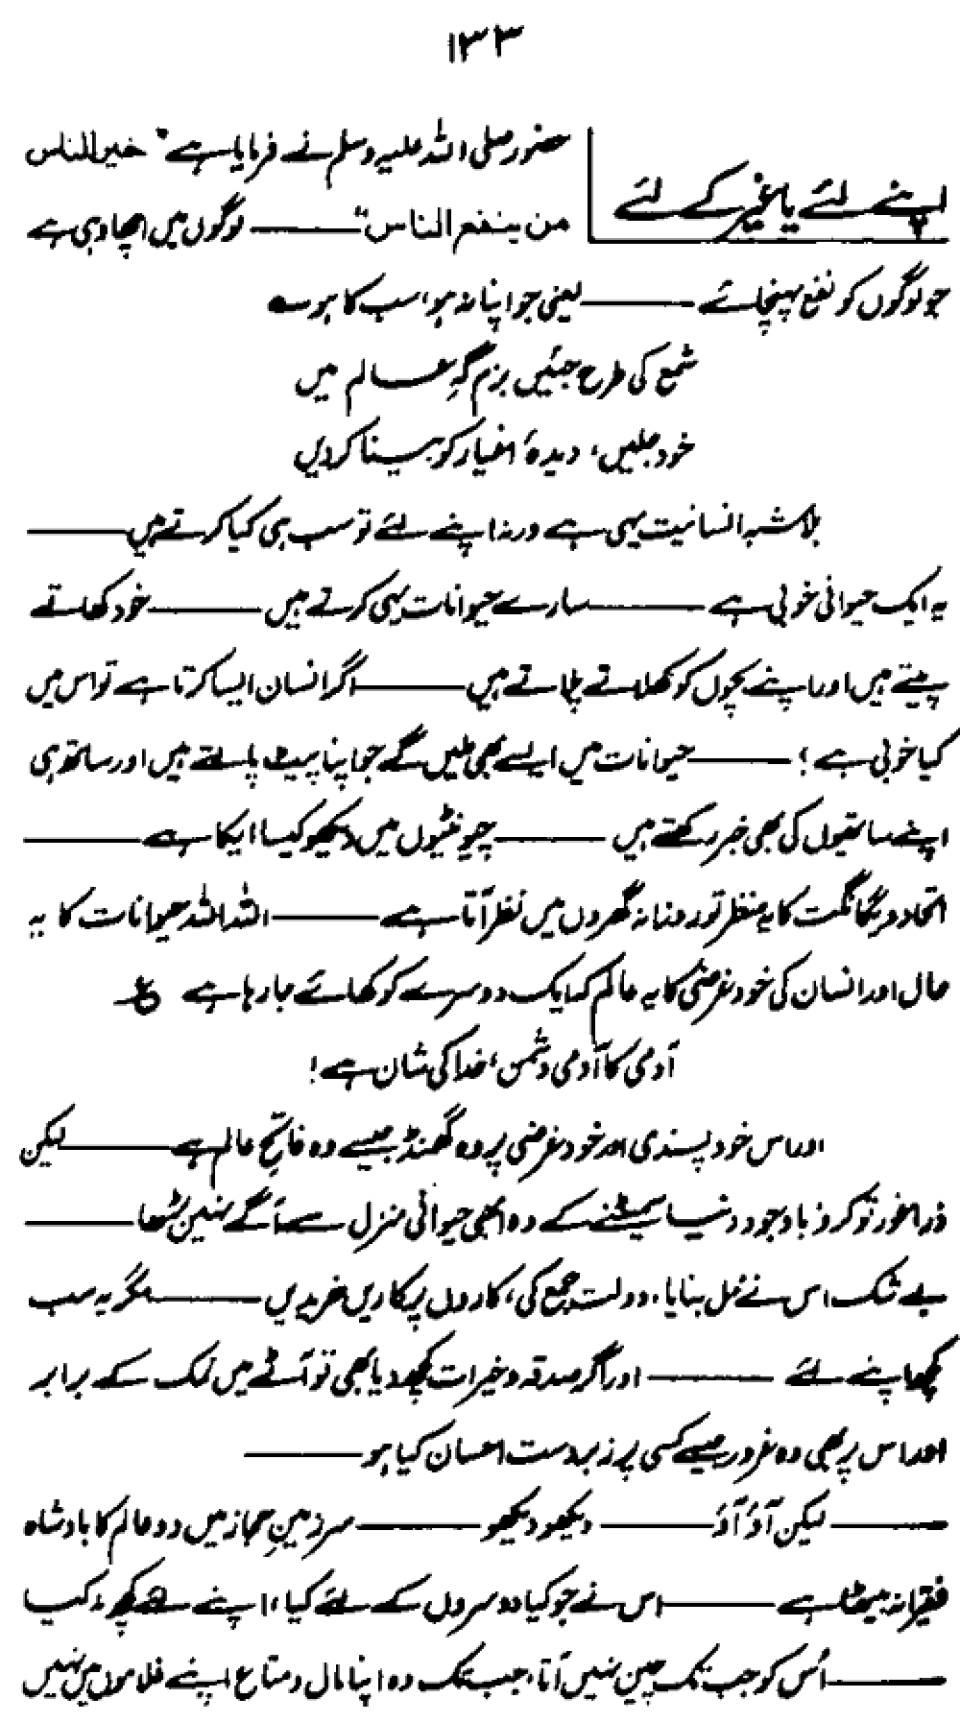 ۱۳۳
اپنے لئے یا غیر کے لئے
حضور صلی اللہ علیہ وسلم نے فرمایا ہے "خیر الناس
من ینفع الناس" ——— لوگوں میں اچھا وہی ہے
جو لوگوں کو نفع پہنچائے ——— یعنی جو اپنا نہ ہو، سب کا ہو ؎
شمع کی طرح جئیں بزم گہِ عالم میں
خود جلیں، دیدۂ اغیار کو بینا کر دیں
بلاشبہ انسانیت یہی ہے ورنہ اپنے لئے تو سب ہی کیا کرتے ہیں ———
یہ ایک حیوانی خوبی ہے ——— سارے حیوانات یہی کرتے ہیں ——— خود کھاتے
پیتے ہیں اور اپنے بچوں کو کھلاتے پلاتے ہیں ——— اگر انسان ایسا کرتا ہے تو اس میں
کیا خوبی ہے؟ ——— حیوانات میں ایسے بھی ملیں گے جو اپنا پیٹ پالتے ہیں اور ساتھ ہی
اپنے ساتھیوں کی بھی خبر رکھتے ہیں ——— چیونٹیوں میں دیکھو کیسا ایکا ہے ———
اتحاد و یگانگت کا یہ منظر تو روزانہ گھروں میں نظر آتا ہے ——— اللہ اللہ حیوانات کا یہ
حال اور انسان کی خود غرضی کا یہ عالم کہ ایک دوسرے کو کھائے جا رہا ہے ع
آدمی کا آدمی دشمن، خدا کی شان ہے!
اور اس خود پسندی اور خود غرضی پر وہ گھمنڈ جیسے وہ فاتحِ عالم ہے ——— لیکن
ذرا غور تو کرو باوجود دنیا سمیٹنے کے وہ ابھی حیوانی منزل سے آگے نہیں بڑھا ———
بے شک اس نے محل بنایا، دولت جمع کی، کاروں پر کاریں خریدیں ——— مگر یہ سب
کچھ اپنے لئے ——— اور اگر صدقہ و خیرات کچھ دیا بھی تو آٹے میں نمک کے برابر
اور اس پر بھی وہ غرور جیسے کسی پر زبردست احسان کیا ہو ———
——— لیکن آؤ آؤ ——— دیکھو دیکھو ——— سرزمینِ حجاز میں دو عالم کا بادشاہ
فقیرانہ بیٹھا ہے ——— اس نے جو کیا دوسروں کے لئے کیا، اپنے لئے کچھ نہ کیا
——— اُس کو جب تک چین نہیں آتا، جب تک وہ اپنا مال و متاع اپنے غلاموں میں نہیں